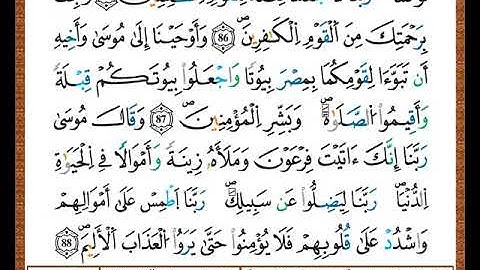 بِرَحْمَتِكَ مِنَ اَ۬لْقَوْمِ اِ۬لْكَٰفِرِينَۖ 86 وَأَوْحَيْنَا إِلَىٰ مُوسَىٰ وَأَخِيهِ
أَن تَبَوَّءَا لِقَوْمِكُمَا بِمِصْرَ بِيُوتاٗ وَاجْعَلُواْ بِيُوتَكُمْ قِبْلَةٗ
وَأَقِيمُواْ اُ۬لصَّلَوٰةَۖ وَبَشِّرِ اِ۬لْمُؤْمِنِينَۖ 87 وَقَالَ مُوسَىٰ
رَبَّنَا إِنَّكَ ءَاتَيْتَ فِرْعَوْنَ وَمَلَأَهُۥ زِينَةٗ وَأَمْوَٰلاٗ فِے اِ۬لْحَيَوٰةِ
اِ۬لدُّنْيَا رَبَّنَا لِيَضِلُّواْ عَن سَبِيلِكَۖ رَبَّنَا اَ۪طْمِسْ عَلَىٰ أَمْوَٰلِهِمْ
وَاشْدُدْ عَلَىٰ قُلُوبِهِمْ فَلَا يُؤْمِنُواْ حَتَّىٰ يَرَوُاْ اُ۬لْعَذَابَ اَ۬لْأَلِيمَۖ 88